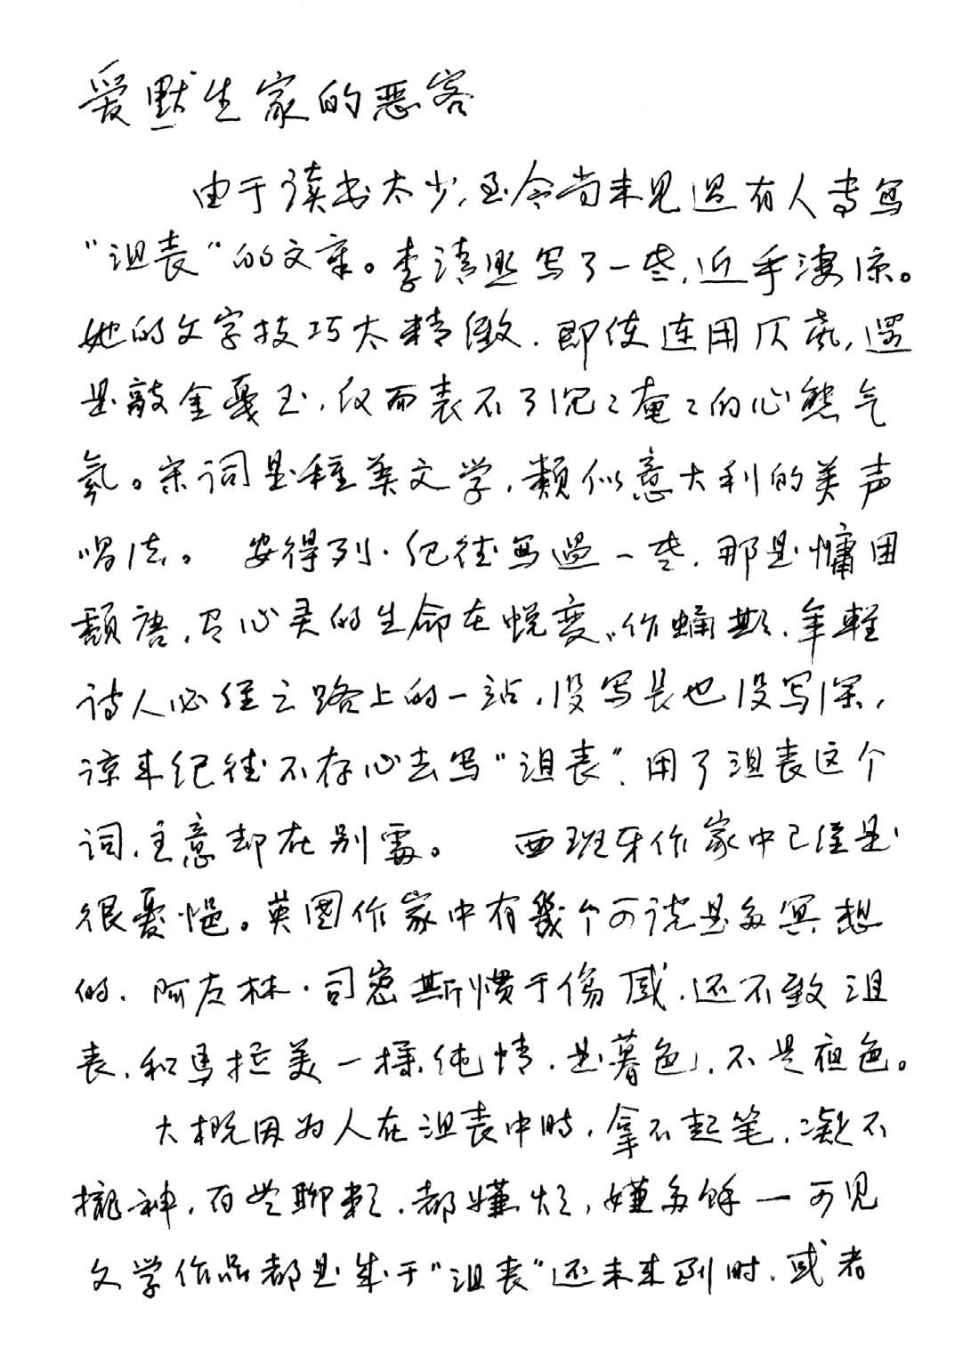 爱默生家的恶客
由于读书太少,至今尚未见過有人专写
“沮丧”的文章。李清照写了一些,近乎凄凉。
她的文字技巧太精致.即使连用仄声,還
是敲金戛玉,反而表不了沉沉奄奄的心態气
氛。宋词是種美文学,類似意大利的美声
唱法。安得列·纪德写過一些.那是慵困
颓唐,是心灵的生命在蜕变、作蛹期.年轻
诗人必经之路上的一站,没写長也没写深,
谅来纪德不存心去写“沮丧”,用了沮丧这个
词,主意却在别處。西班牙作家中已僅是
很憂悒。英國作家中有幾个可说是多冥想
的.阿左林·司密斯惯于傷感.还不致沮
丧.和馬拉美一樣,纯情.是暮色,.不是夜色。
大概因为人在沮丧中時,拿不起笔,凝不
攏神,百無聊赖.都嫌烦,嫌多餘一可见
文学作品都是产于“沮丧”还未来到时.或者